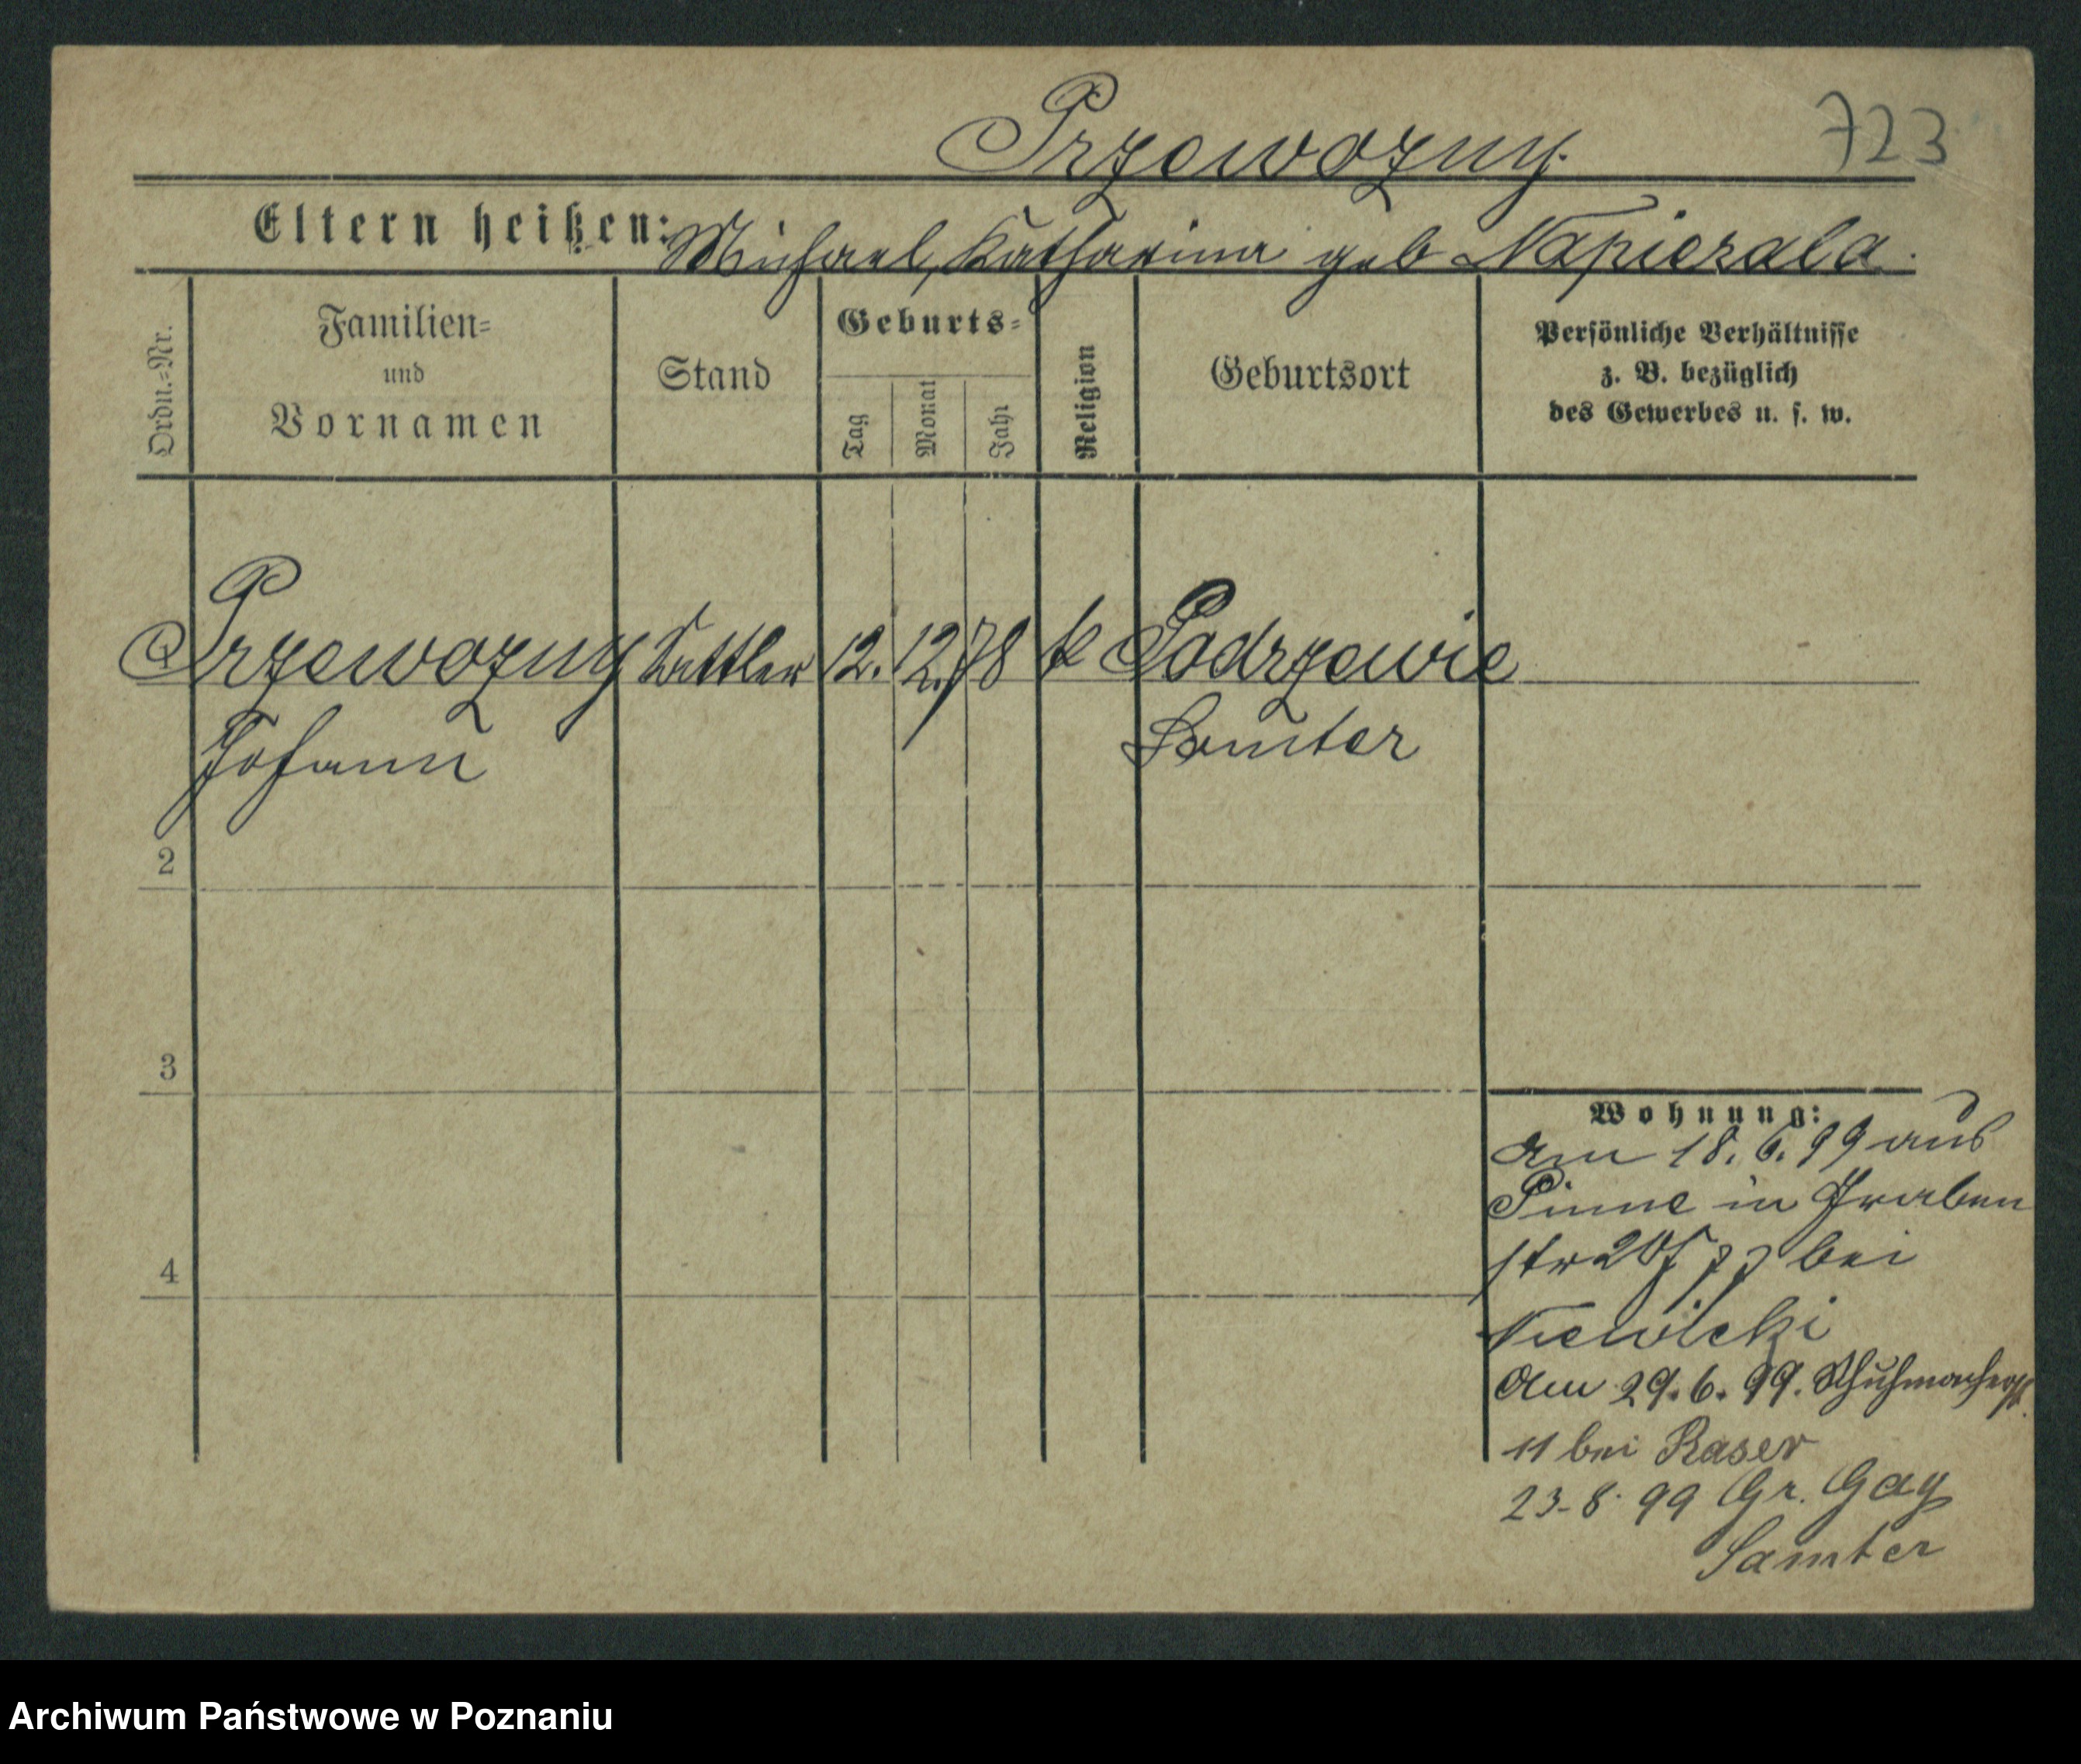 Przewozny.
723
Eltern heißen: Michael, Katharina geb Napierala.
Ordn.-Nr.
Familien-
und
Vornamen
Stand
Geburts-
Tag
Monat
Jahr
Religion
Geburtsort
Persönliche Verhältnisse
z. B. bezüglich
des Gewerbes u. s. w.
Przewozny Sattler 12. 12. 78 k Podrzewie
Johann Samter
2
3
4
Wohnung:
Am 18. 6. 99 aus
Pinne in Graben
str bei
Am 29. 6. 99. Schuhmacherst.
11 bei Raser
23-8. 99 Gr. Gay
Samter
Archiwum Państwowe w Poznaniu